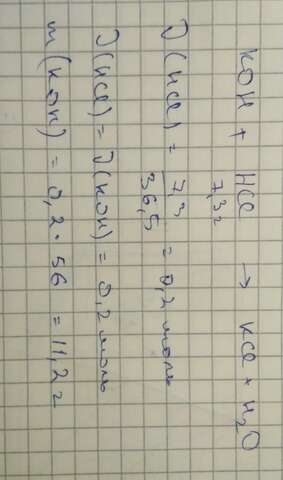 KOH + HCl → KCl + H₂O
7,3 г
ν(HCl) = 7,3 / 36,5 = 0,2 моль
ν(HCl) = ν(KOH) = 0,2 моль
m(KOH) = 0,2 · 56 = 11,2 г